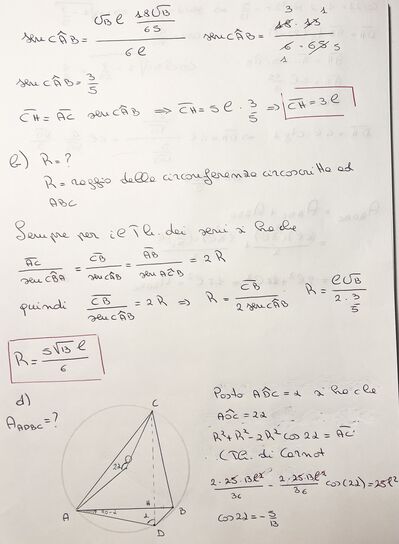 sen CÂB = (√13 ℓ 18√13/65) / 6ℓ sen CÂB = 18·13 / 6·65 3 1 1 5
sen CÂB = 3/5
CH = AC sen CÂB ⇒ CH = 5ℓ · 3/5 ⇒ CH = 3ℓ
c) R = ?
R = raggio della circonferenza circoscritta ad
ABC
Sempre per il Th. dei seni si ha che
AC/sen CBA = CB/sen CÂB = AB/sen AĈB = 2R
quindi CB/sen CÂB = 2R ⇒ R = CB/2 sen CÂB R = ℓ√13 / 2·3/5
R = 5√13 ℓ / 6
d)
A ADBC = ?
C
2α
O
A
90-α
H
B
α
D
Posto AD̂C = α si ha che
AÔC = 2α
R² + R² - 2R² cos 2α = AC²
(Th. di Carnot
2·25·13ℓ²/36 - 2·25·13ℓ²/36 cos(2α) = 25ℓ²
cos 2α = -5/13